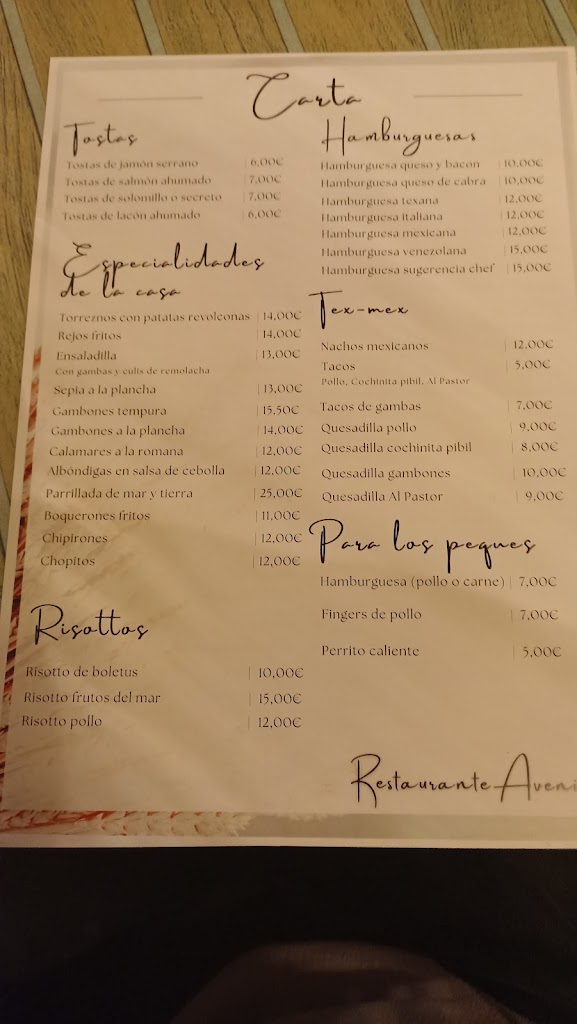 Carta
Tostas
Tostas de jamón serrano | 6,00€
Tostas de salmón ahumado | 7,00€
Tostas de solomillo o secreto | 7,00€
Tostas de lacón ahumado | 6,00€
Especialidades
de la casa
Torreznos con patatas revolconas | 14,00€
Rejos fritos | 14,00€
Ensaladilla | 13,00€
Con gambas y culis de remolacha
Sepia a la plancha | 13,00€
Gambones tempura | 15,50€
Gambones a la plancha | 14,00€
Calamares a la romana | 12,00€
Albóndigas en salsa de cebolla | 12,00€
Parrillada de mar y tierra | 25,00€
Boquerones fritos | 11,00€
Chipirones | 12,00€
Chopitos | 12,00€
Risottos
Risotto de boletus | 10,00€
Risotto frutos del mar | 15,00€
Risotto pollo | 12,00€
Hamburguesas
Hamburguesa queso y bacon | 10,00€
Hamburguesa queso de cabra | 10,00€
Hamburguesa texana | 12,00€
Hamburguesa italiana | 12,00€
Hamburguesa mexicana | 12,00€
Hamburguesa venezolana | 15,00€
Hamburguesa sugerencia chef | 15,00€
Tex-mex
Nachos mexicanos | 12,00€
Tacos | 5,00€
Pollo, Cochinita pibil, Al Pastor
Tacos de gambas | 7,00€
Quesadilla pollo | 9,00€
Quesadilla cochinita pibil | 8,00€
Quesadilla gambones | 10,00€
Quesadilla Al Pastor | 9,00€
Para los peques
Hamburguesa (pollo o carne) | 7,00€
Fingers de pollo | 7,00€
Perrito caliente | 5,00€
Restaurante Aveni